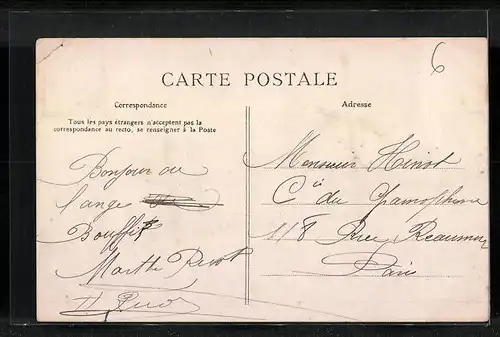 6
CARTE POSTALE
Correspondance
Adresse
Tous les pays étrangers n'acceptent pas la
correspondance au recto, se renseigner à la Poste
Bonjour au
l'ange
Bouffi
Marthe
Monsieur Hinot
Cie du Gramophone
118 Rue Reaumur
Paris